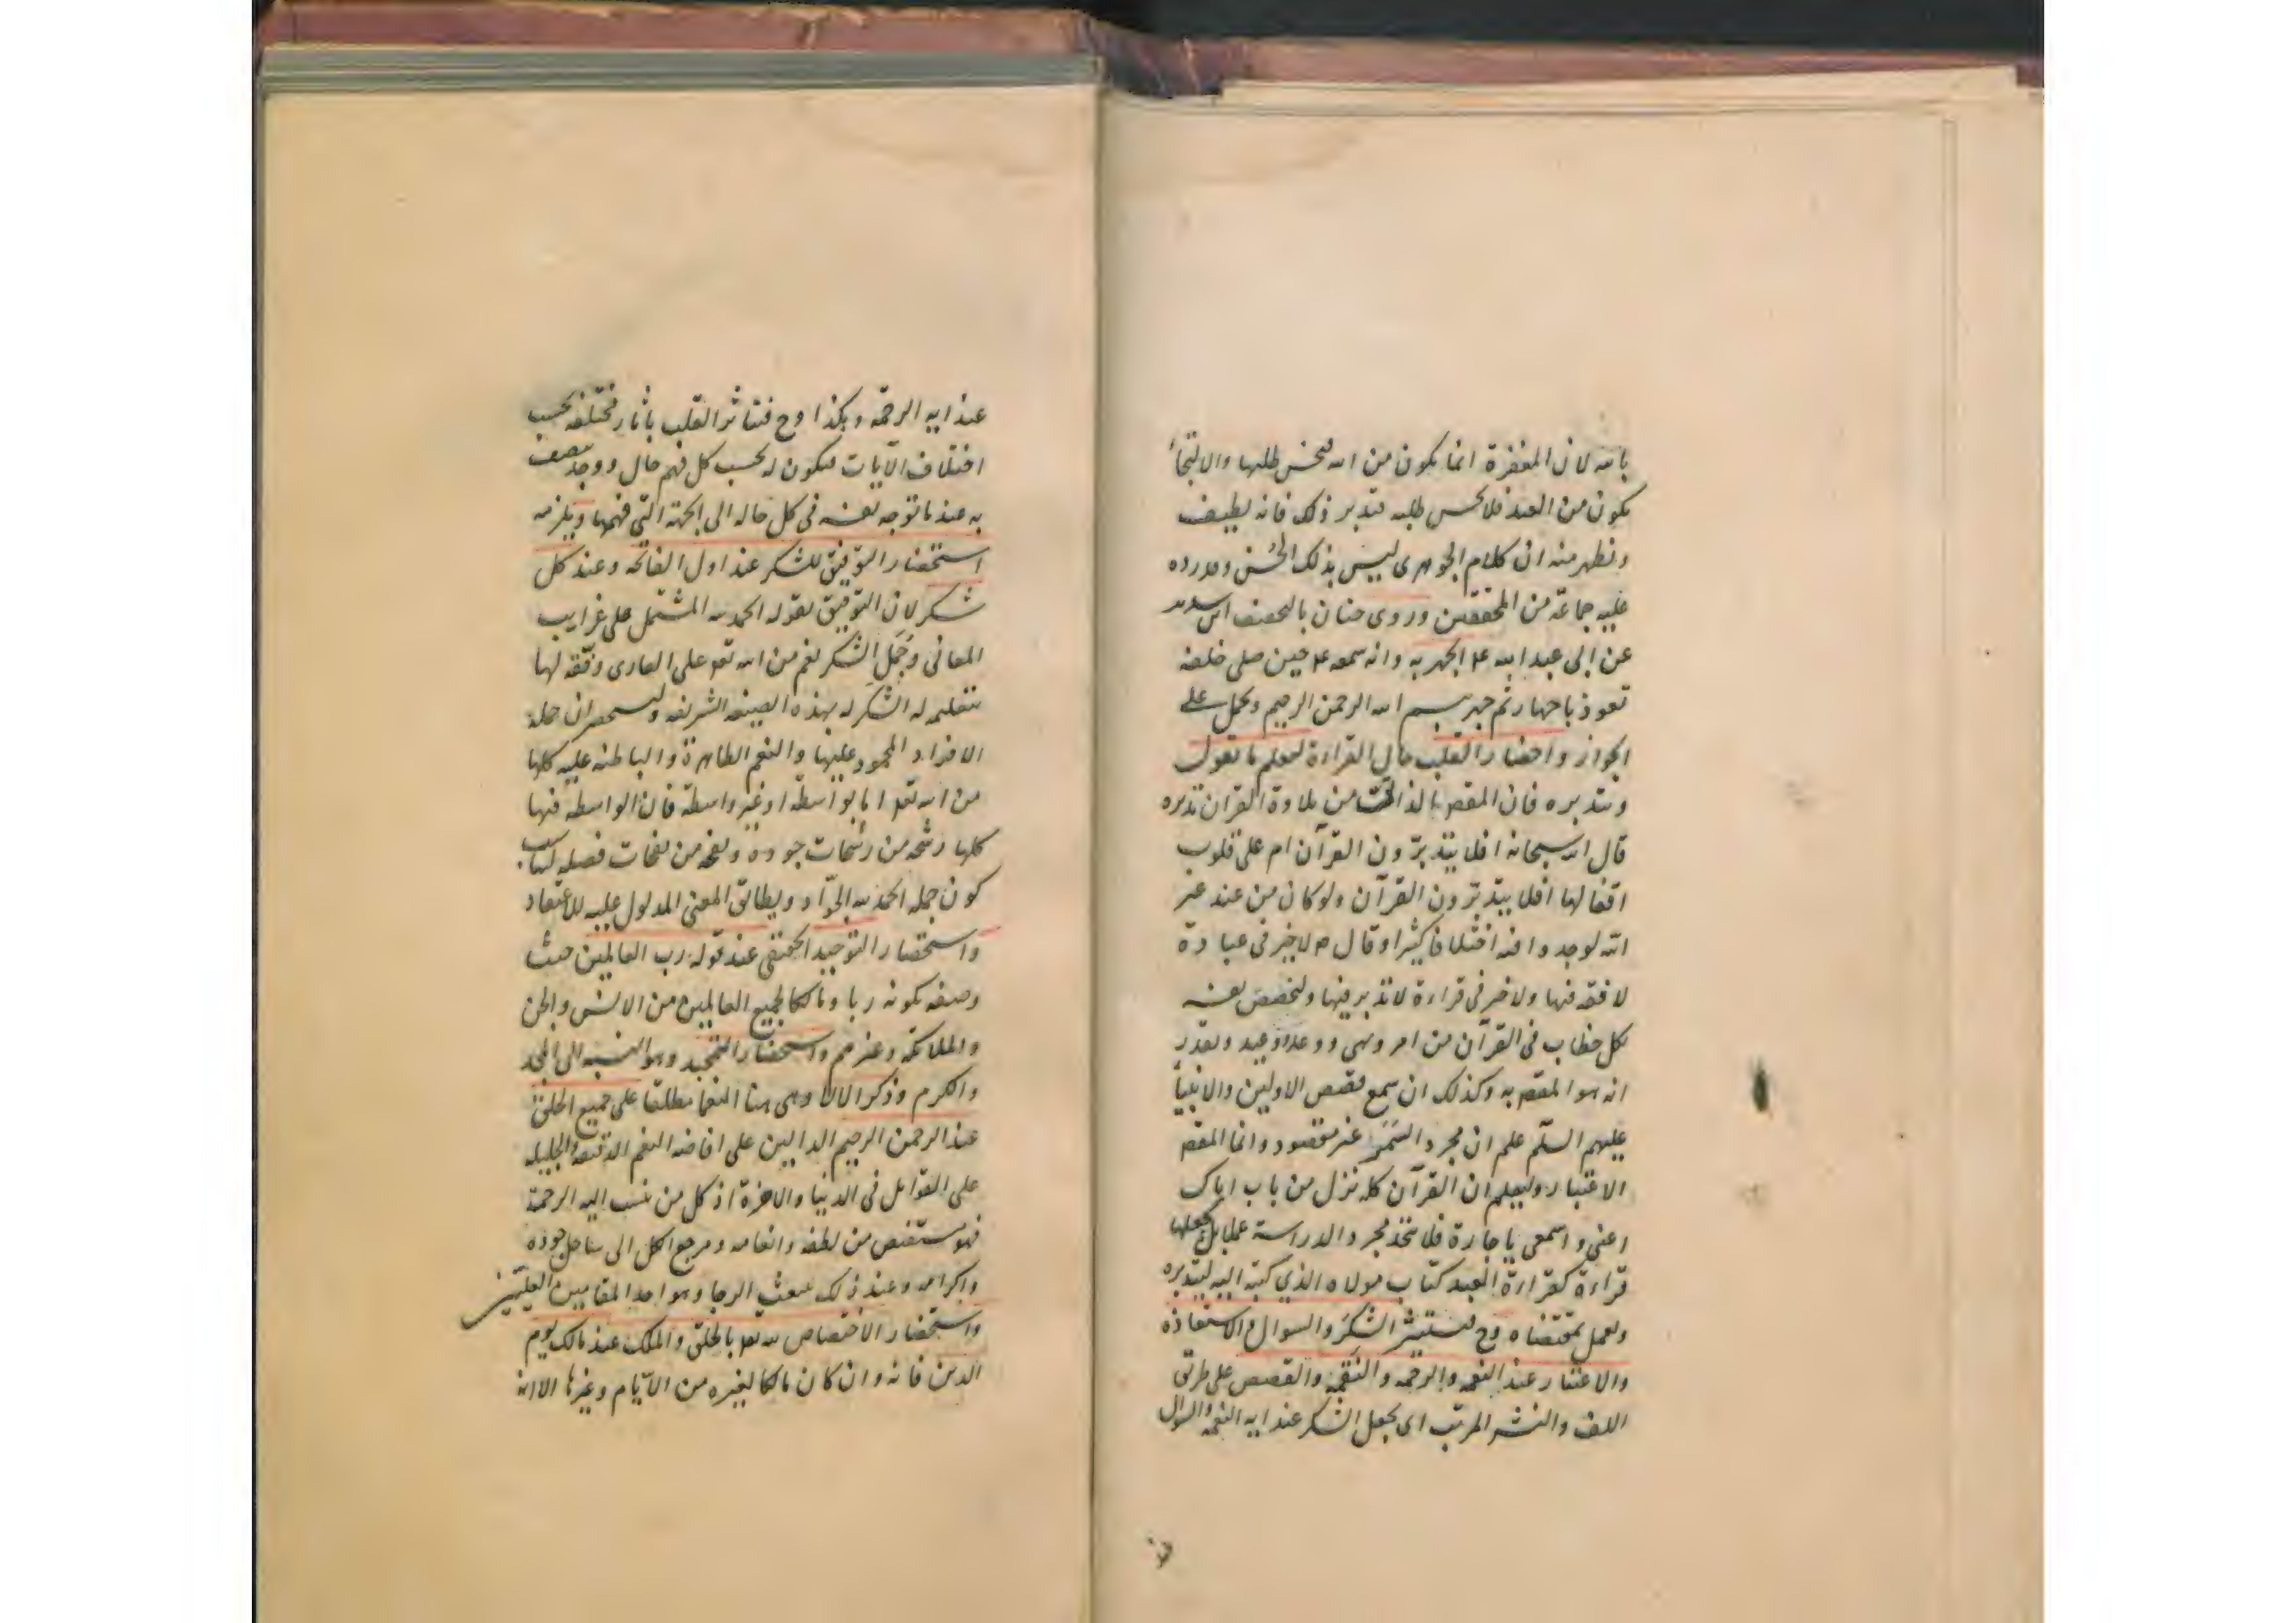 بالله لان المغفرة انما يكون من الله فيحسن طلبها والالتجاء
يكون من العبد فلا يحسن طلبه فتدبر ذلك فانه لطيف
ونظهر منه ان كلام الجوهرى ليس بذلك الحسن ومن رده
عليه جماعة من المحققين وروى حنان بالتخفيف ابن سدير
عن ابى عبد الله ع الجهر به وانه سمعه ع حين صلى خلفه
تعوذ باجهار ثم جهر ببسم الله الرحمن الرحيم ويحمل على
الجواز واحضار القلب حال القراءة ليعلم ما تقول
وتتدبره فان المقص بالذات من تلاوة القران تدبره
قال الله سبحانه افلا يتدبرون القرآن ام على قلوب
اقفالها افلا يتدبرون القرآن ولو كان من عند غير
الله لوجدوا فيه اختلافا كثيرا وقال ص لا خير فى عبادة
لا فقه فيها ولا خير فى قراءة لا تدبر فيها وليخصص نفسه
بكل خطاب فى القرآن من امر ونهى ووعد ووعيد ويقدر
انه هو المقص به وكذلك ان سمع قصص الاولين والانبياء
عليهم السلم علم ان مجرد السمر غير مقصود وانما المقص
الاعتبار وليعلم ان القرآن كله نزل من باب اياك
اعنى واسمعى يا جارة فلا يتخذ مجرد الدراسة عملا بل يجعلها
قراءة كقراءة العبد كتاب مولاه الذي كتبه اليه ليتدبره
ويعمل بمقتضاه وح فيستشعر الشكر والسوال والاستعاذة
والاعتبار عند النعمه والرحمه والنقمة والقصص على طريق
اللف والنشر المرتب اى يجعل الشكر عند ايه النعمة والسوال
عند ايه الرحمة وهكذا وح فيتاثر القلب باثار مختلفه بحسب
اختلاف الآيات فيكون له بحسب كل فهم حال ووجد يتصف
به عند ما توجه نفسه فى كل حاله الى الجهة التى فهمها ويلزمه
استحضار التوفيق للشكر عند اول الفاتحه وعند كل
شكر لان التوفيق لقوله الحمد لله المشتمل على غرايب
المعانى وجمل الشكر نعم من الله تعو على القارى وفقه لها
بتعليمه له الشكر له بهذه الصيغه الشريفه وليستحضر ان جملة
الافراد المحمود عليها والنعم الظاهرة والباطنه عليه كلها
من الله تعو اما بواسطة او غير واسطة فان الواسطه فيها
كلها رشحه من رشحات جوده ونفحه من نفحات فضله ليناسب
كون جمله الحمد لله الجواد ويطابق المعنى المدلول عليه للاعتقاد
واستحضار التوحيد الحقيقى عند قوله رب العالمين حيث
وصفه بكونه ربا ومالكا لجميع العالمين من الانس والجن
والملائكه وغيرهم واستحضار التمجيد وهو النسبه الى المجد
والكرم وذكر الالاء وهى هنا النعما مطلقا على جميع الخلق
عند الرحمن الرحيم الدالين على افاضه النعم الدقيقه والجليله
على القوابل فى الدنيا والاخرة اذ كل من ينسب اليه الرحمة
فهو مستفيض من لطفه وانعامه ومرجع الكل الى ساحل جوده
واكرامه وعند ذلك يبعث الرجا وهو احد المقامين العليين
واستحضار الاختصاص لله تعو بالخلق والملك عند مالك يوم
الدين فانه وان كان مالكا لغيره من الايام وغيرها الا انه
عند